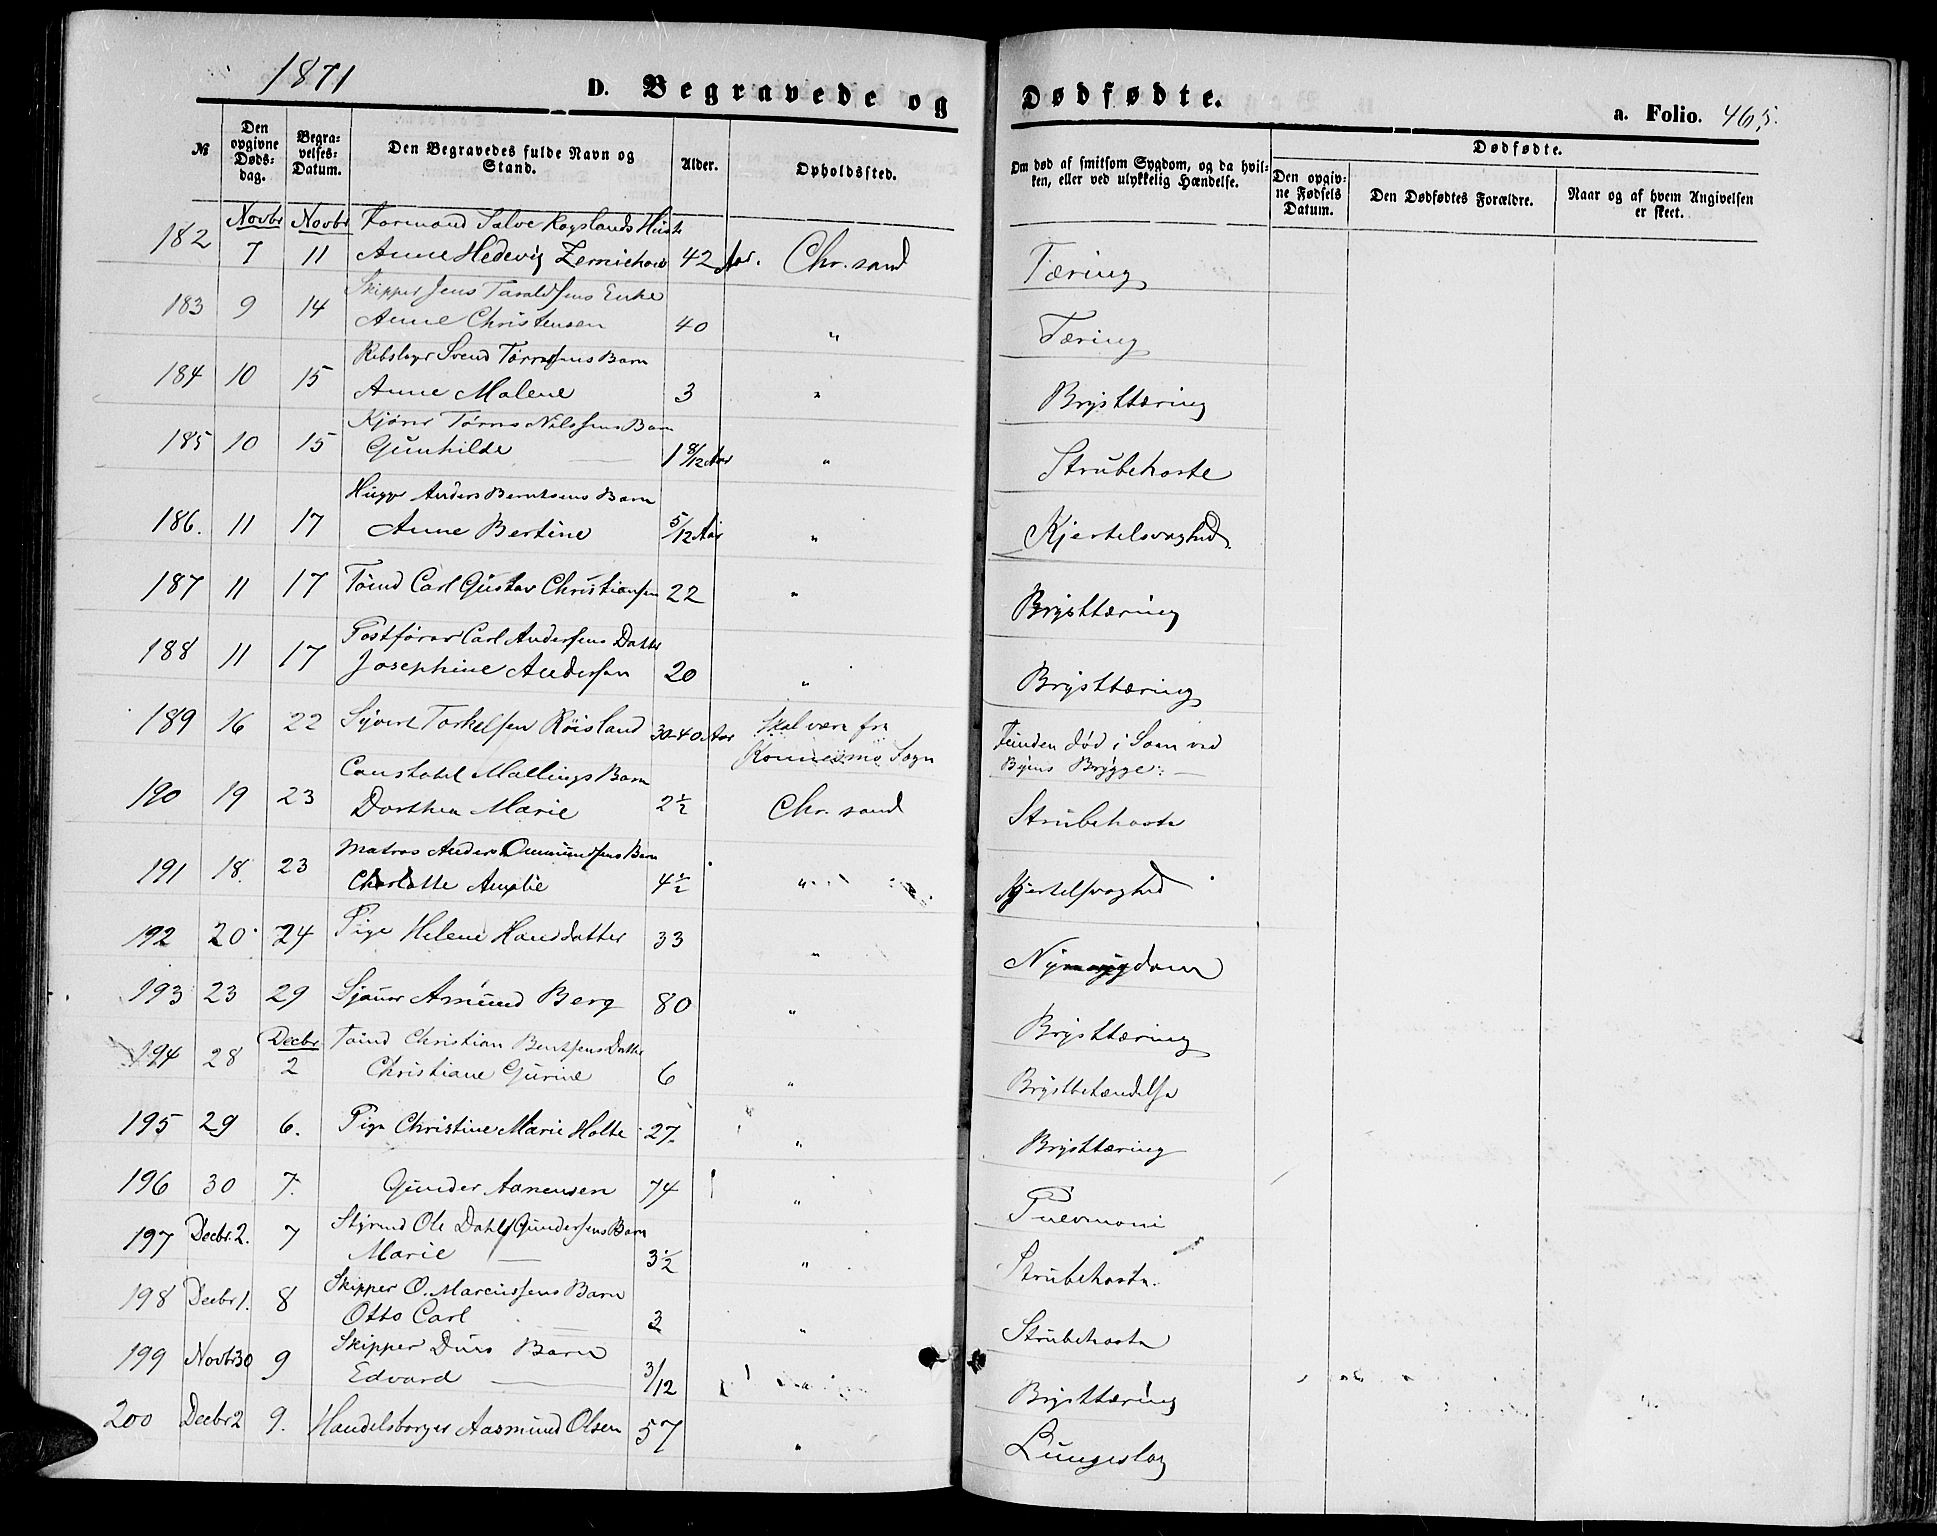 1871
D. Begravede og Dødfødte.
a. Folio. 465.
№ Den opgivne Døds-dag. Begra-velses-Datum. Den Begravedes fulde Navn og Stand. Alder. Opholdssted. Om død af smitsom Sygdom, og da hvil-ken, eller ved ulykkelig Hændelse. Dødfødte.
Den opgiv-ne Fødsels Datum. Den Dødfødtes Forældre. Naar og af hvem Angivelsen er skeet.
Novbr Novbr Formand Salve
182 7 11 Anne Hedevig 42 Aar. Chr.sand Tæring
Skipper Jens Taraldsens Enke
183 9 14 Anne Christensen 40 " Tæring
Rebslager Svend Barn
184 10 15 Anne Malene 3 " Brysttæring
Nilssens Barn
185 10 15 Gunhilde — 1 8/12 Aar " Strubehoste
Anders Berntsens Barn
186. 11 17 Anne Bertine 5/12 Aar " Kjertelsvaghed.
187 11 17 Tømd Carl Gustav Christiansen 22 " Brysttæring
Postfører Carl Andersens Datter
188 11 17 Josephine Andersen 20 " Brysttæring
189 16 22 Syvert Torkelsen Røisland 30-40 Aar Skal være fra Funden død i Søen ved
Konnesmo Sogn Byens Brygge. —
Constabel Mallings Barn
190 19 23 Dorthea Marie 2 1/2 Chr.sand Strubehoste
Matros Anders Ommundsens Barn
191 18. 23 Charlotte Amalie 4 1/2 " Kjertelsvaghed
192 20 24 Pige Helene Hansdatter 33 "
193 23 29 Sjouer Amund Berg 80 " Brysttæring
Decbr Tømd Christian Bentsens Datter
194 28 2 Christiane Gurine 6 " Brystbetændelse
195 29 6. Pige Christine Marie Holte 27. " Brysttæring
196 30 7. Gunder Aanensen 74 "
Styrmd Ole Dahl Gundersens Barn
197 Decbr. 2. 7 Marie — 3 1/2 " Strubehoste.
Skipper O. Marcussens Barn
198 Decbr 1. 8 Otto Carl — 3 " Strubehoste
Skipper Barn
199 Novbr 30 9 Edvard — 3/12 " Brysttæring
200 Decbr 2 9. Handelsborger Aasmund Olsen 57 " Lungeslag